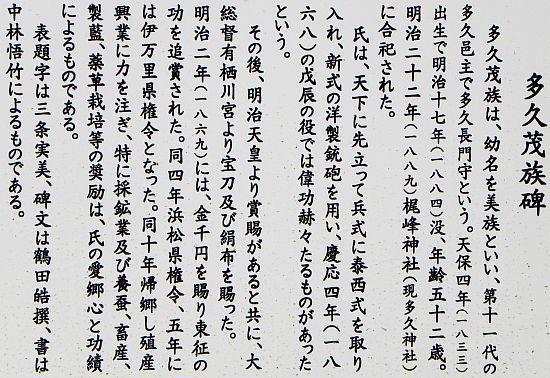 多久茂族碑
多久茂族は、幼名を美族といい、第十一代の
多久邑主で多久長門守という。天保四年(一八三三)
出生で明治十七年(一八八四)没、年齢五十二歳。
明治二十二年(一八八九)梶峰神社(現多久神社)
に合祀された。
氏は、天下に先立って兵式に泰西式を取り
入れ、新式の洋製銃砲を用い、慶応四年(一八
六八)の戊辰の役では偉功赫々たるものがあった
という。
その後、明治天皇より賞賜があると共に、大
総督有栖川宮より宝刀及び絹布を賜った。
明治二年(一八六九)には、金千円を賜り東征の
功を追賞された。同四年浜松県権令、五年に
は伊万里県権令となった。同十年帰郷し殖産
興業に力を注ぎ、特に採鉱業及び養蚕、畜産、
製藍、薬草栽培等の奨励は、氏の愛郷心と功績
によるものである。
表題字は三条実美、碑文は鶴田皓撰、書は
中林悟竹によるものである。